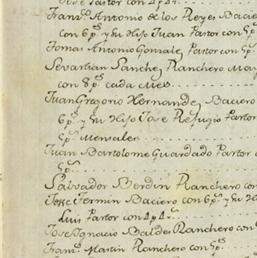 Jose Pastor con 4p 4r.
Fran.co Antonio de los Reyes Bacie
con 6p.s y su Hijo Juan Pastor con 5p
Tomas Antonio Gonzalez Pastor con 5p
Sevastian Sanchez Ranchero May
con 8p.s cada mes
Juan Gregorio Hernandez Baciero
6p.s y su Hijo Jose Refugio Pastor
5p.s mensales
Juan Bartolome Guardado Pastor c
5p.s
Salvador Berdin Ranchero con
Jose Fermin Baciero con 6p.s y su H
Luis Pastor con 4p 4r.s
Jose Ignacio Baldes Ranchero con
Fran.co Martin Ranchero con 5p.s